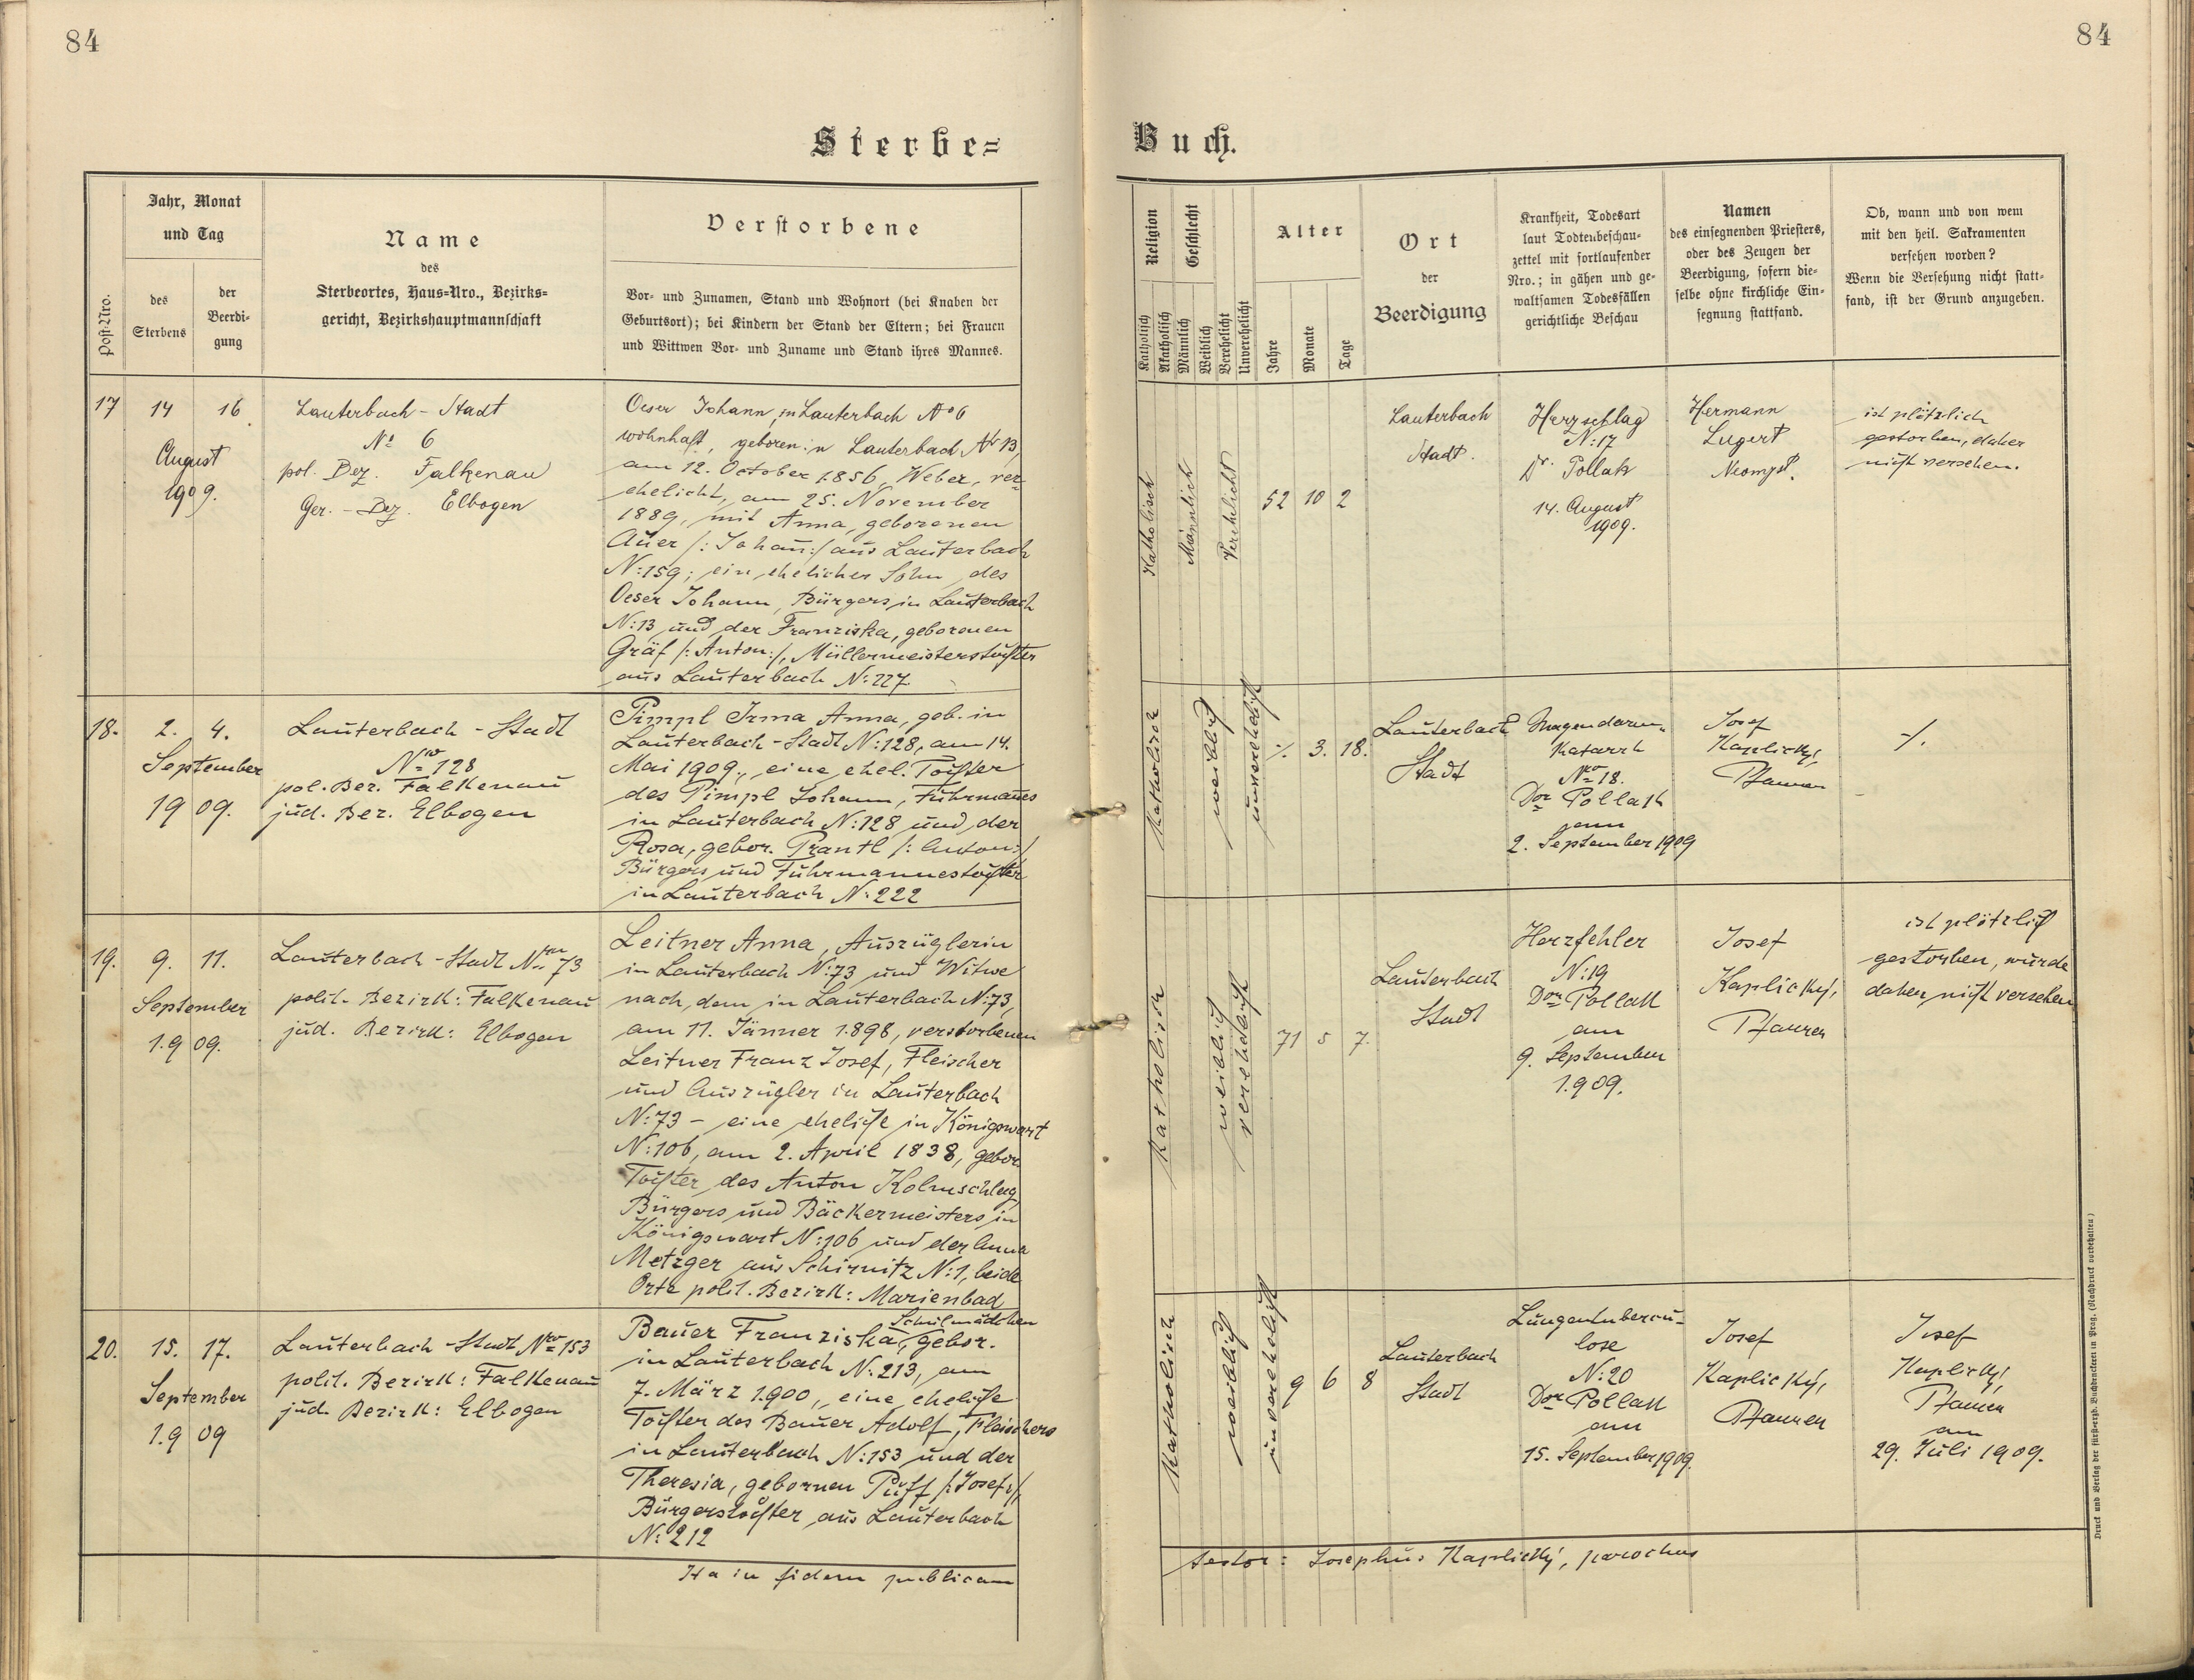 84
84
Sterbe=
Buch.
Post-Nro.
Jahr, Monat
und Tag
des
Sterbens
der
Beerdi-
gung
Name
des
Sterbeortes, Haus-Nro., Bezirks-
gericht, Bezirkshauptmannschaft
Verstorbene
Vor- und Zunamen, Stand und Wohnort (bei Knaben der
Geburtsort); bei Kindern der Stand der Eltern; bei Frauen
und Wittwen Vor- und Zuname und Stand ihres Mannes.
Religion
Katholisch
Akatholisch
Geschlecht
Männlich
Weiblich
Verehelicht
Unverehelicht
Alter
Jahre
Monate
Tage
Ort
der
Beerdigung
Krankheit, Todesart
laut Todtenbeschau-
zettel mit fortlaufender
Nro.; in gähen und ge-
waltsamen Todesfällen
gerichtliche Beschau
Namen
des einsegnenden Priesters,
oder des Zeugen der
Beerdigung, sofern die-
selbe ohne kirchliche Ein-
segnung stattfand.
Ob, wann und von wem
mit den heil. Sakramenten
versehen worden?
Wenn die Versehung nicht statt-
fand, ist der Grund anzugeben.
17
14
16
August
1909.
Lauterbach - Stadt
No 6
pol. Bez. Falkenau
Ger. - Bez. Elbogen
Oeser Johann, in Lauterbach No 6
wohnhaft, geboren in Lauterbach Nr 13,
am 12. October 1856, Weber, ver-
ehelicht, am 25. November
1889, mit Anna, geborenen
Auer /: Johann :/ aus Lauterbach
N: 159; ein ehelicher Sohn des
Oeser Johann, Bürgers in Lauterbach
N: 13 und der Franziska, geborenen
Gräf /: Anton :/, Müllermeisterstochter
aus Lauterbach N: 227
Katholisch
Männlich
Verehelicht
52
10
2
Lauterbach
Stadt.
Herzschlag
N: 17
Dr. Pollak
14. August
1909.
Hermann
Lugert
Neomyst.
ist plötzlich
gestorben, daher
nicht versehen.
18.
2.
4.
September
1909.
Lauterbach - Stadt
Nro 128
pol. Bez. Falkenau
jud. Bez. Elbogen
Pimpl Irma Anna, geb. in
Lauterbach - Stadt N: 128, am 14.
Mai 1909, eine ehel. Tochter
des Pimpl Johann, Fuhrmannes
in Lauterbach N: 128 und der
Rosa, gebor. Prantl /: Anton :/
Bürgers und Fuhrmannestochter
in Lauterbach N: 222
Katholisch
weiblich
unverehelicht
·/.
3.
18.
Lauterbach
Stadt
Magendarm-
Katarrh
Nro 18.
Dor Pollak
am
2. September 1909
Josef
Kaplický,
Pfarrer
·/.
19.
9.
11.
September
1909.
Lauterbach - Stadt Nro 73
polit. Bezirk: Falkenau
jud. Bezirk: Elbogen
Leitner Anna, Auszüglerin
in Lauterbach N: 73 und Witwe
nach dem in Lauterbach N: 73,
am 11. Jänner 1898, verstorbenen
Leitner Franz Josef, Fleischer
und Auszügler in Lauterbach
N: 73 - eine eheliche in Königswart
N: 106, am 2. April 1838, gebor.
Tochter des Anton Kolmschlag,
Bürgers und Bäckermeisters in
Königswart N: 106 und der Anna
Metzger aus Schirnitz N: 1, beide
Orte polit. Bezirk: Marienbad
Katholisch
weiblich
verehelicht
71
5
7.
Lauterbach
Stadt
Herzfehler
N: 19
Dor Pollak
am
9. September
1909.
Josef
Kaplický,
Pfarrer
ist plötzlich
gestorben, wurde
daher nicht versehen
20.
15.
17.
September
1909
Lauterbach - Stadt Nro 153
polit. Bezirk: Falkenau
jud. Bezirk: Elbogen
Schulmädchen
Bauer Franziska, gebor.
in Lauterbach N: 213, am
7. März 1900, eine eheliche
Tochter des Bauer Adolf, Fleischers
in Lauterbach N: 153 und der
Theresia, gebornen Puff /: Josef :/,
Bürgerstochter aus Lauterbach
N: 212
Katholisch
weiblich
unverehelicht
9
6
8
Lauterbach
Stadt
Lungentubercu-
lose
N: 20
Dor Pollak
am
15. September 1909.
Josef
Kaplický,
Pfarrer
Josef
Kaplický,
Pfarrer
am
29. Juli 1909.
Ita in fidem publicam
testor: Josephus Kaplický, parochus
Druck und Verlag der fürst-erzb. Buchdruckerei in Prag. (Nachdruck vorbehalten)